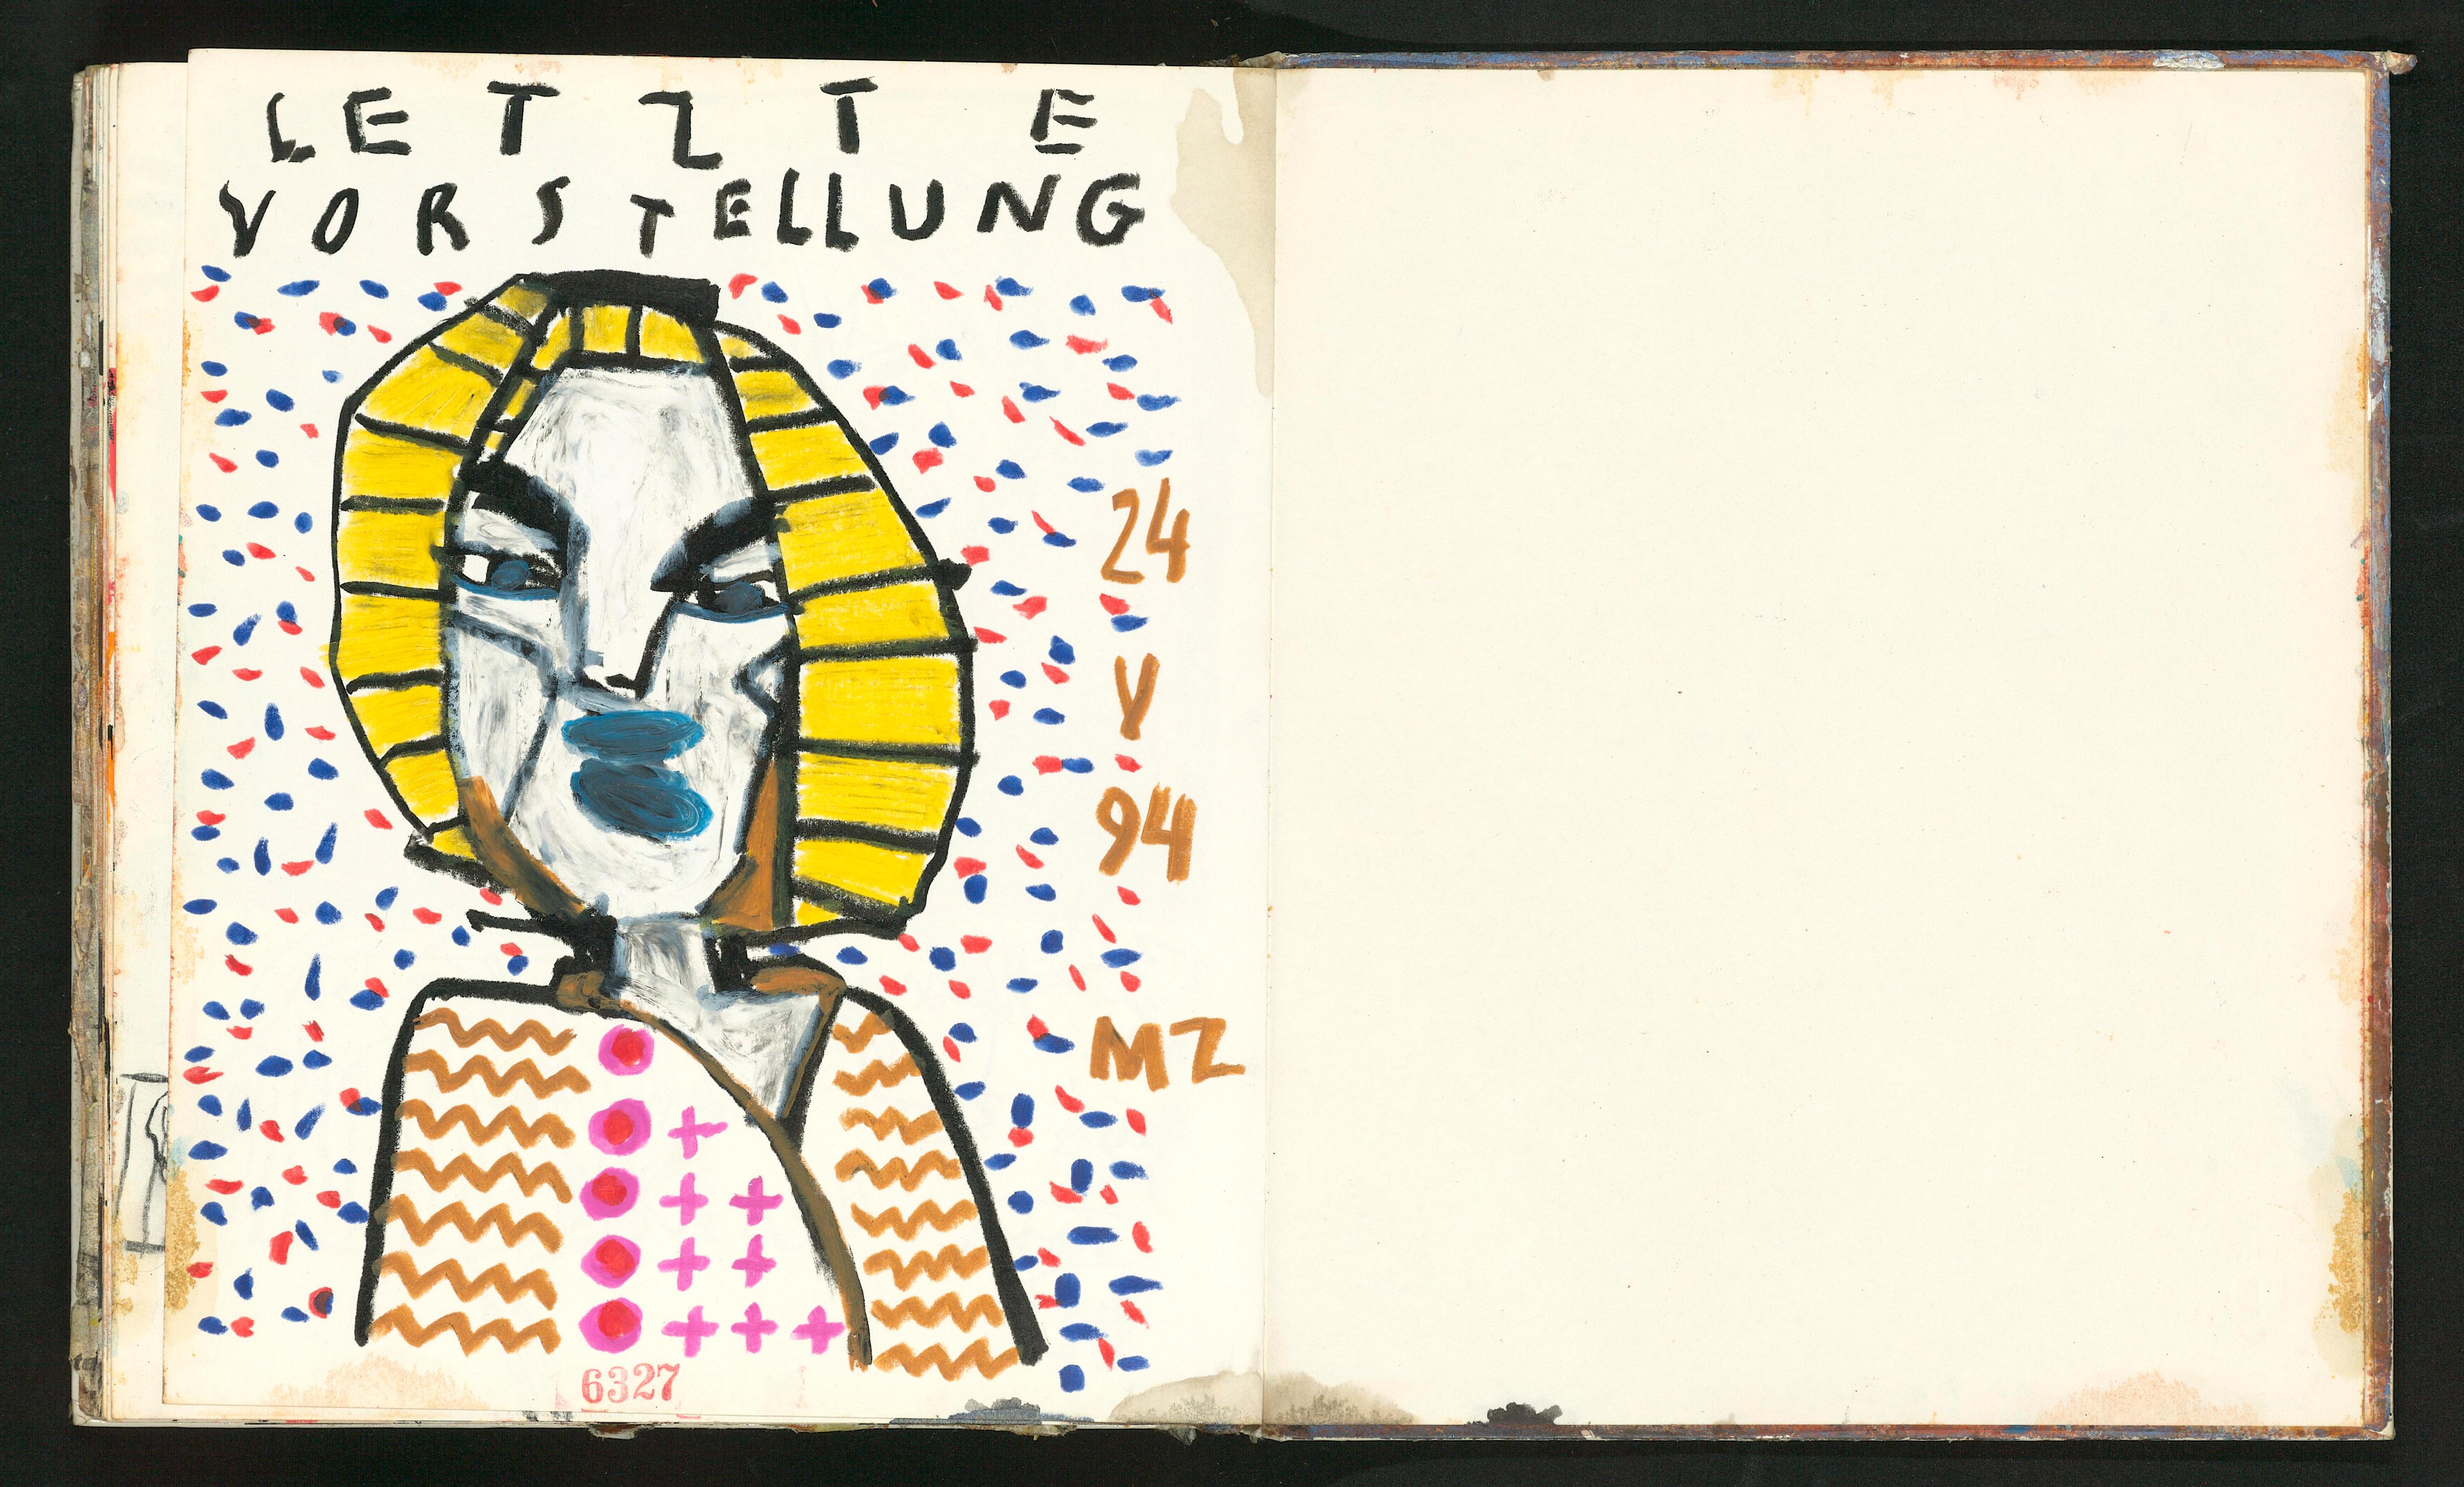 LETZTE
VORSTELLUNG
24
V
94
MZ
6327